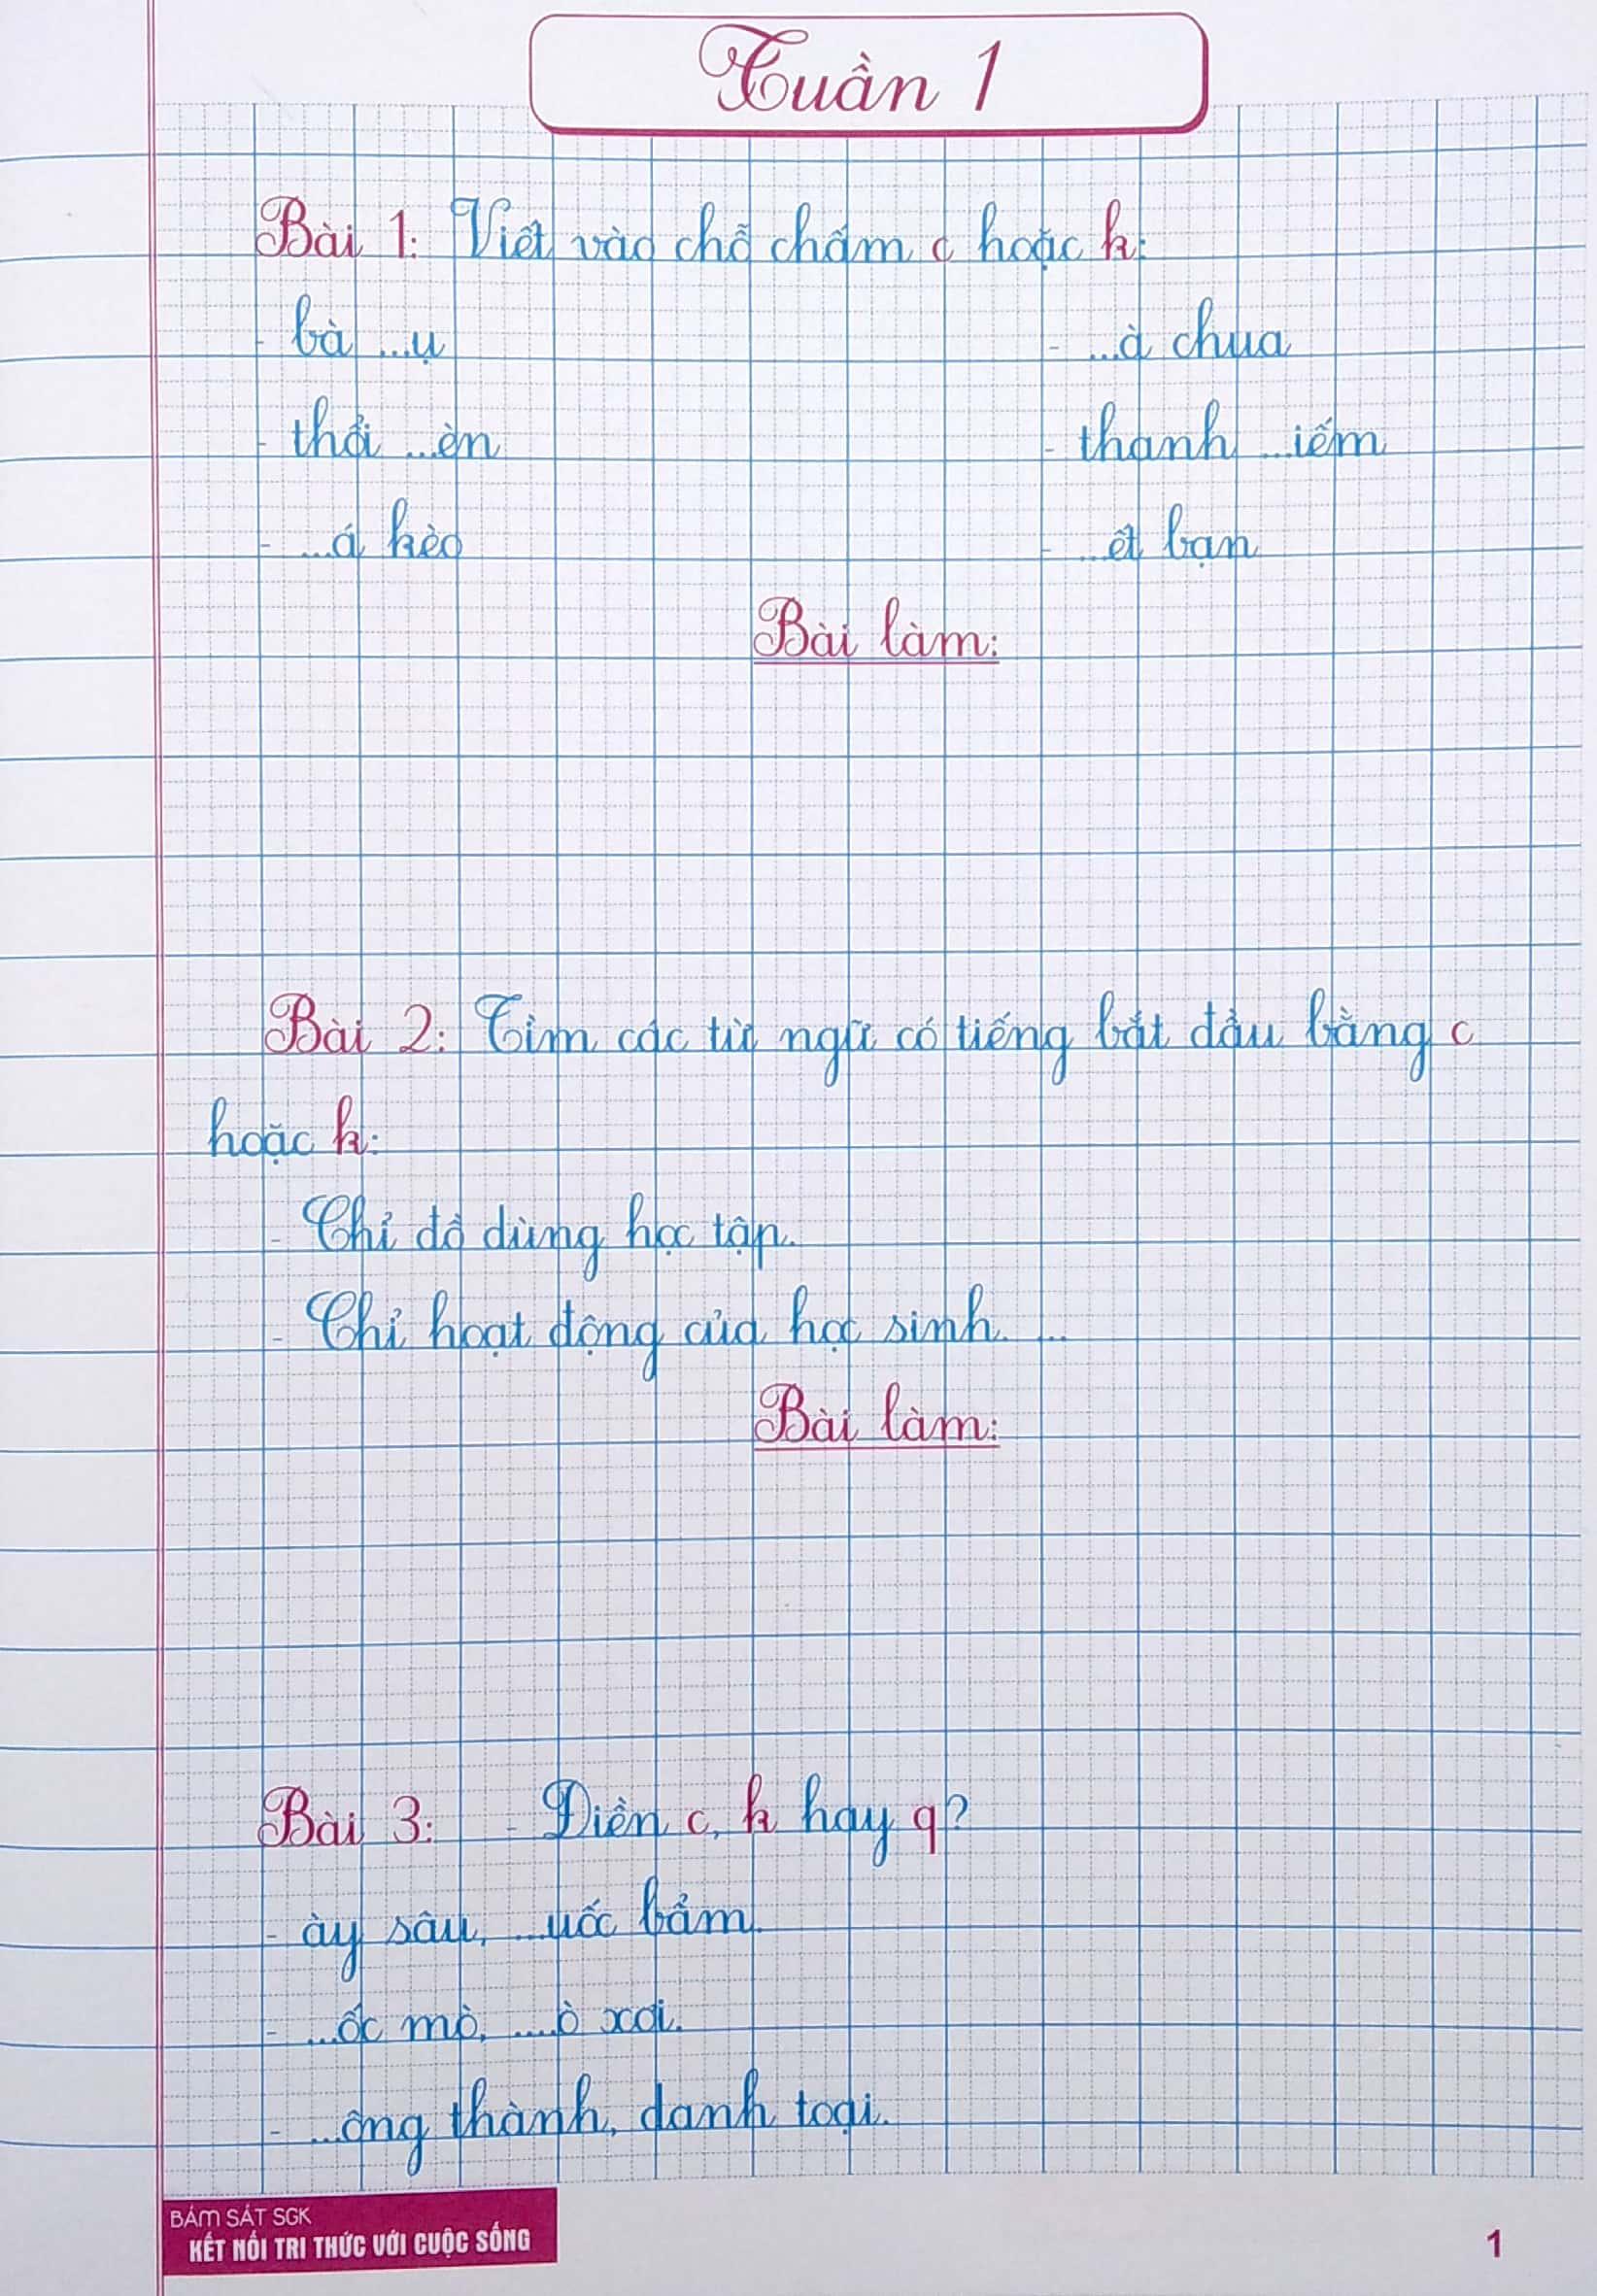 Tuần 1
Bài 1: Viết vào chỗ chấm c hoặc k:
- bà ...ụ - ...à chua
- thổi ...èn - thanh ...iếm
- ...á kèo - ...ết bạn
Bài làm:
Bài 2: Tìm các từ ngữ có tiếng bắt đầu bằng c
hoặc k:
- Chỉ đồ dùng học tập.
- Chỉ hoạt động của học sinh. ...
Bài làm:
Bài 3: - Điền c, k hay q?
- ày sâu, ...uốc bẫm.
- ...ốc mò, ....ò xơi.
- ...ông thành, danh toại.
BÁM SÁT SGK
KẾT NỐI TRI THỨC VỚI CUỘC SỐNG
1